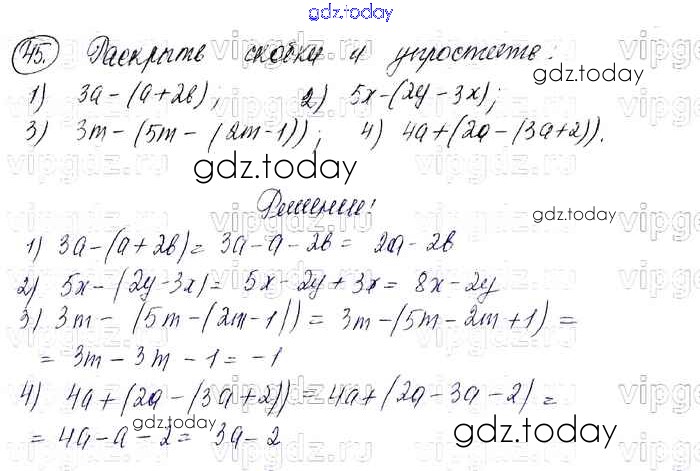 gdz.today
45. Раскрыть скобки и упростить:
1) 3a-(a+2b); 2) 5x-(2y-3x);
3) 3m-(5m-(2m-1)); 4) 4a+(2a-(3a+2)).
Решение!
1) 3a-(a+2b)= 3a-a-2b= 2a-2b
2) 5x-(2y-3x)= 5x-2y+3x= 8x-2y
3) 3m-(5m-(2m-1))= 3m-(5m-2m+1)=
= 3m-3m-1=-1
4) 4a+(2a-(3a+2))=4a+(2a-3a-2)=
= 4a-a-2= 3a-2
gdz.today
gdz.today
gdz.today
gdz.today
gdz.today
gdz.today
gdz.today